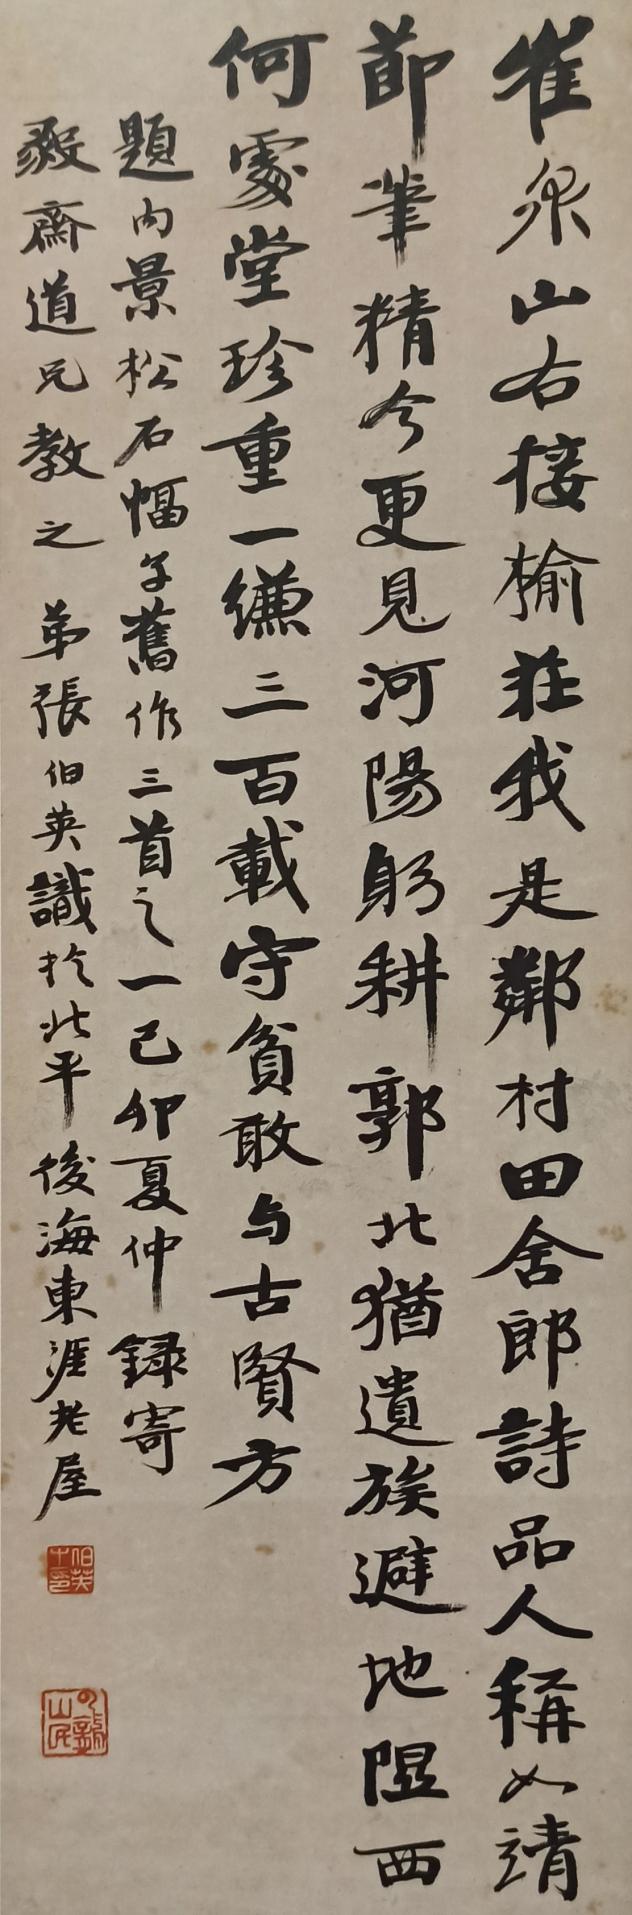 崔泉山右接榆莊我是鄰村田舍郎詩品人稱如靖
節筆精今更見河陽躬耕郭北猶遺族避地隁西
何處堂珍重一縑三百載守貧敢与古賢方
題内景松石幅子舊作三首之一己卯夏仲録寄
毅齋道兄教之 弟張伯英識於北平後海東涯老屋
伯英
山民